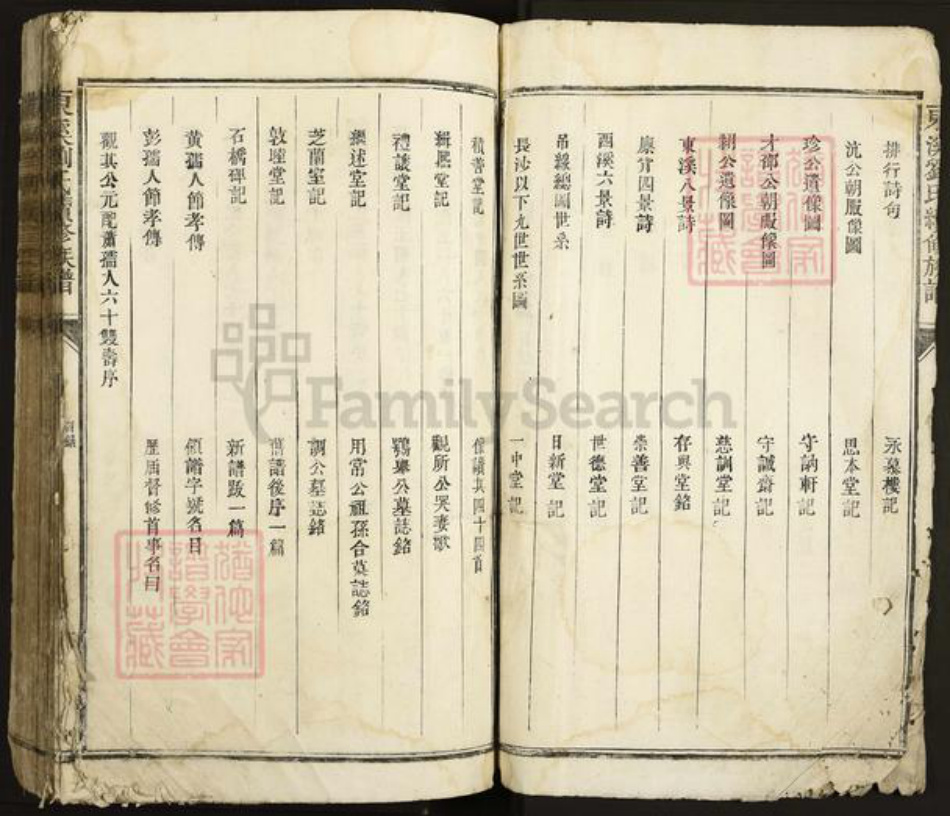 東溪劉氏續修族譜
排行詩句
永慕樓記
沆公朝服像圖
思本堂記
珍公遺像圖
守訥軒記
才卿公朝服像圖
守誠齋記
公遺像圖
慈訓堂記
東溪八景詩
存與堂銘
廉背四景詩
崇善堂記
西溪六景詩
世德堂記
吊線總圖世系
日新堂記
長沙以下九世世系圖
一中堂記
積善堂記
其四十四首
緝熙堂記
觀所公哭妻歌
禮讓堂記
公墓誌銘
繼述堂記
用常公祖孫合葬誌銘
芝蘭室記
調公墓誌銘
敦睦堂記
舊譜後序一篇
石橋碑記
新譜跋一篇
黃孺人節孝傳
領譜字號名目
彭孺人節孝傳
歷屆督修首事名目
觀其公元配蕭孺人六十雙壽序
東溪劉氏續修族譜
目錄
FamilySearch
猶他家譜學會收藏
猶他家譜學會收藏